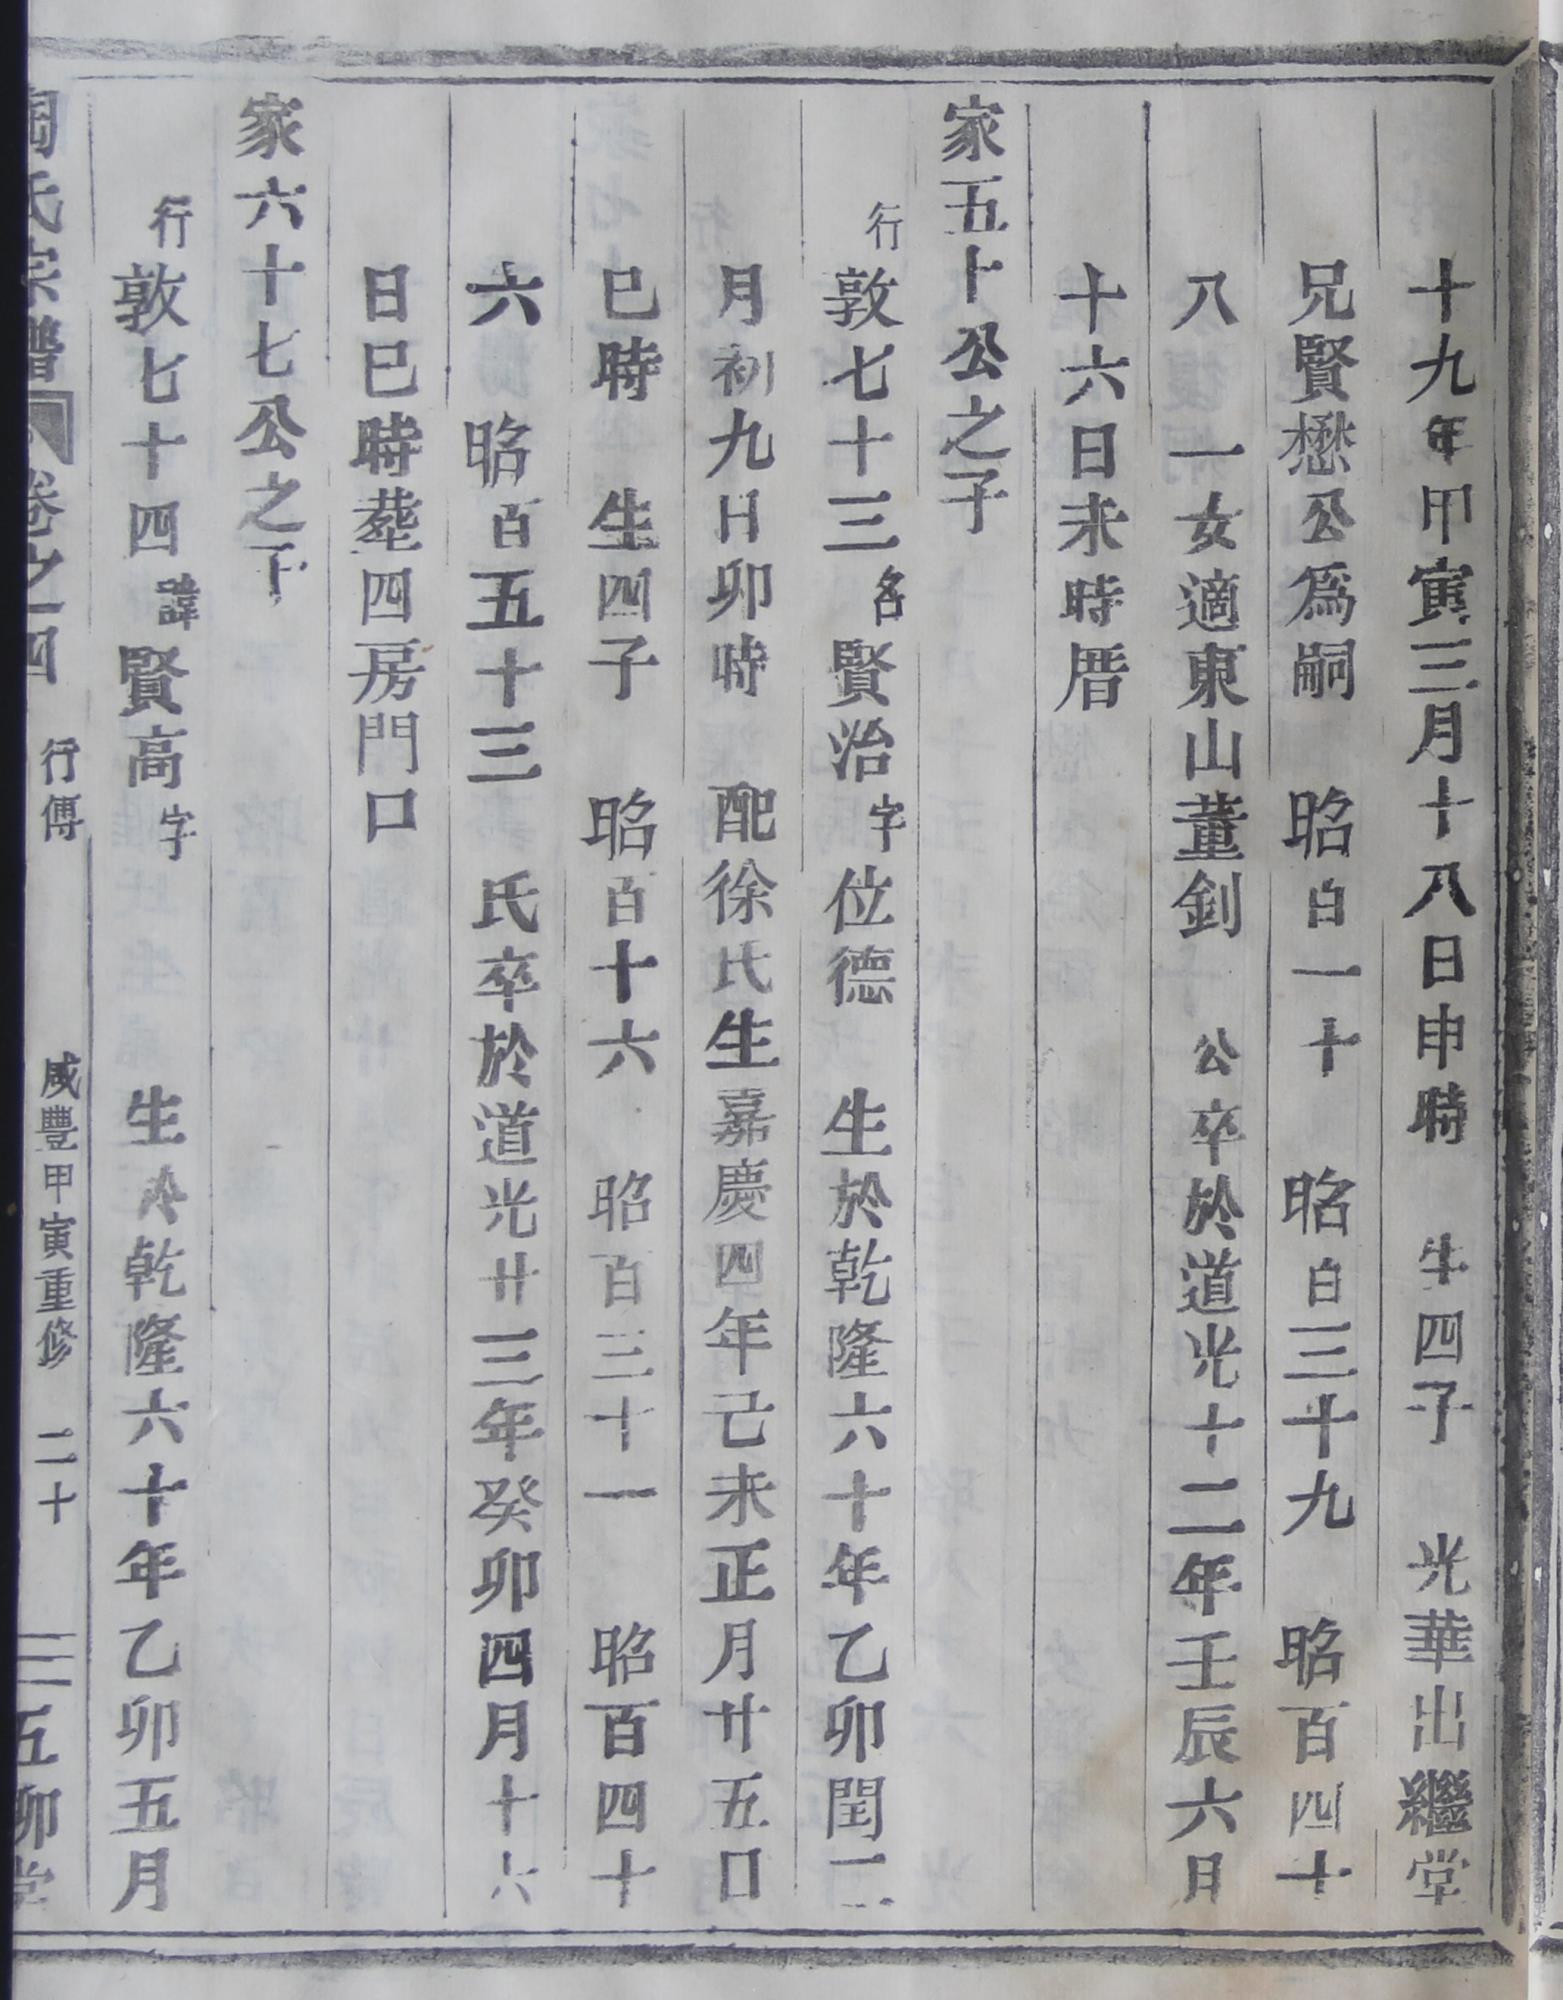 十九年甲寅三月十八日申時 生四子 光華出繼堂
兄賢懋公爲嗣 昭百一十 昭百三十九 昭百四十
八 一女適東山董釗 公卒於道光十二年壬辰六月
十六日未時厝
家五十公之子
行敦七十三名賢治字位德 生於乾隆六十年乙卯閏二
月初九日卯時 配徐氏生嘉慶四年己未正月廿五日
巳時 生四子 昭百十六 昭百三十一 昭百四十
六 昭百五十三 氏卒於道光廿三年癸卯四月十六
日巳時葬四房門口
家六十七公之子
行敦七十四諱賢高字 生於乾隆六十年乙卯五月
陶氏宗譜 卷之四 行傳 咸豐甲寅重修 二十 五柳堂